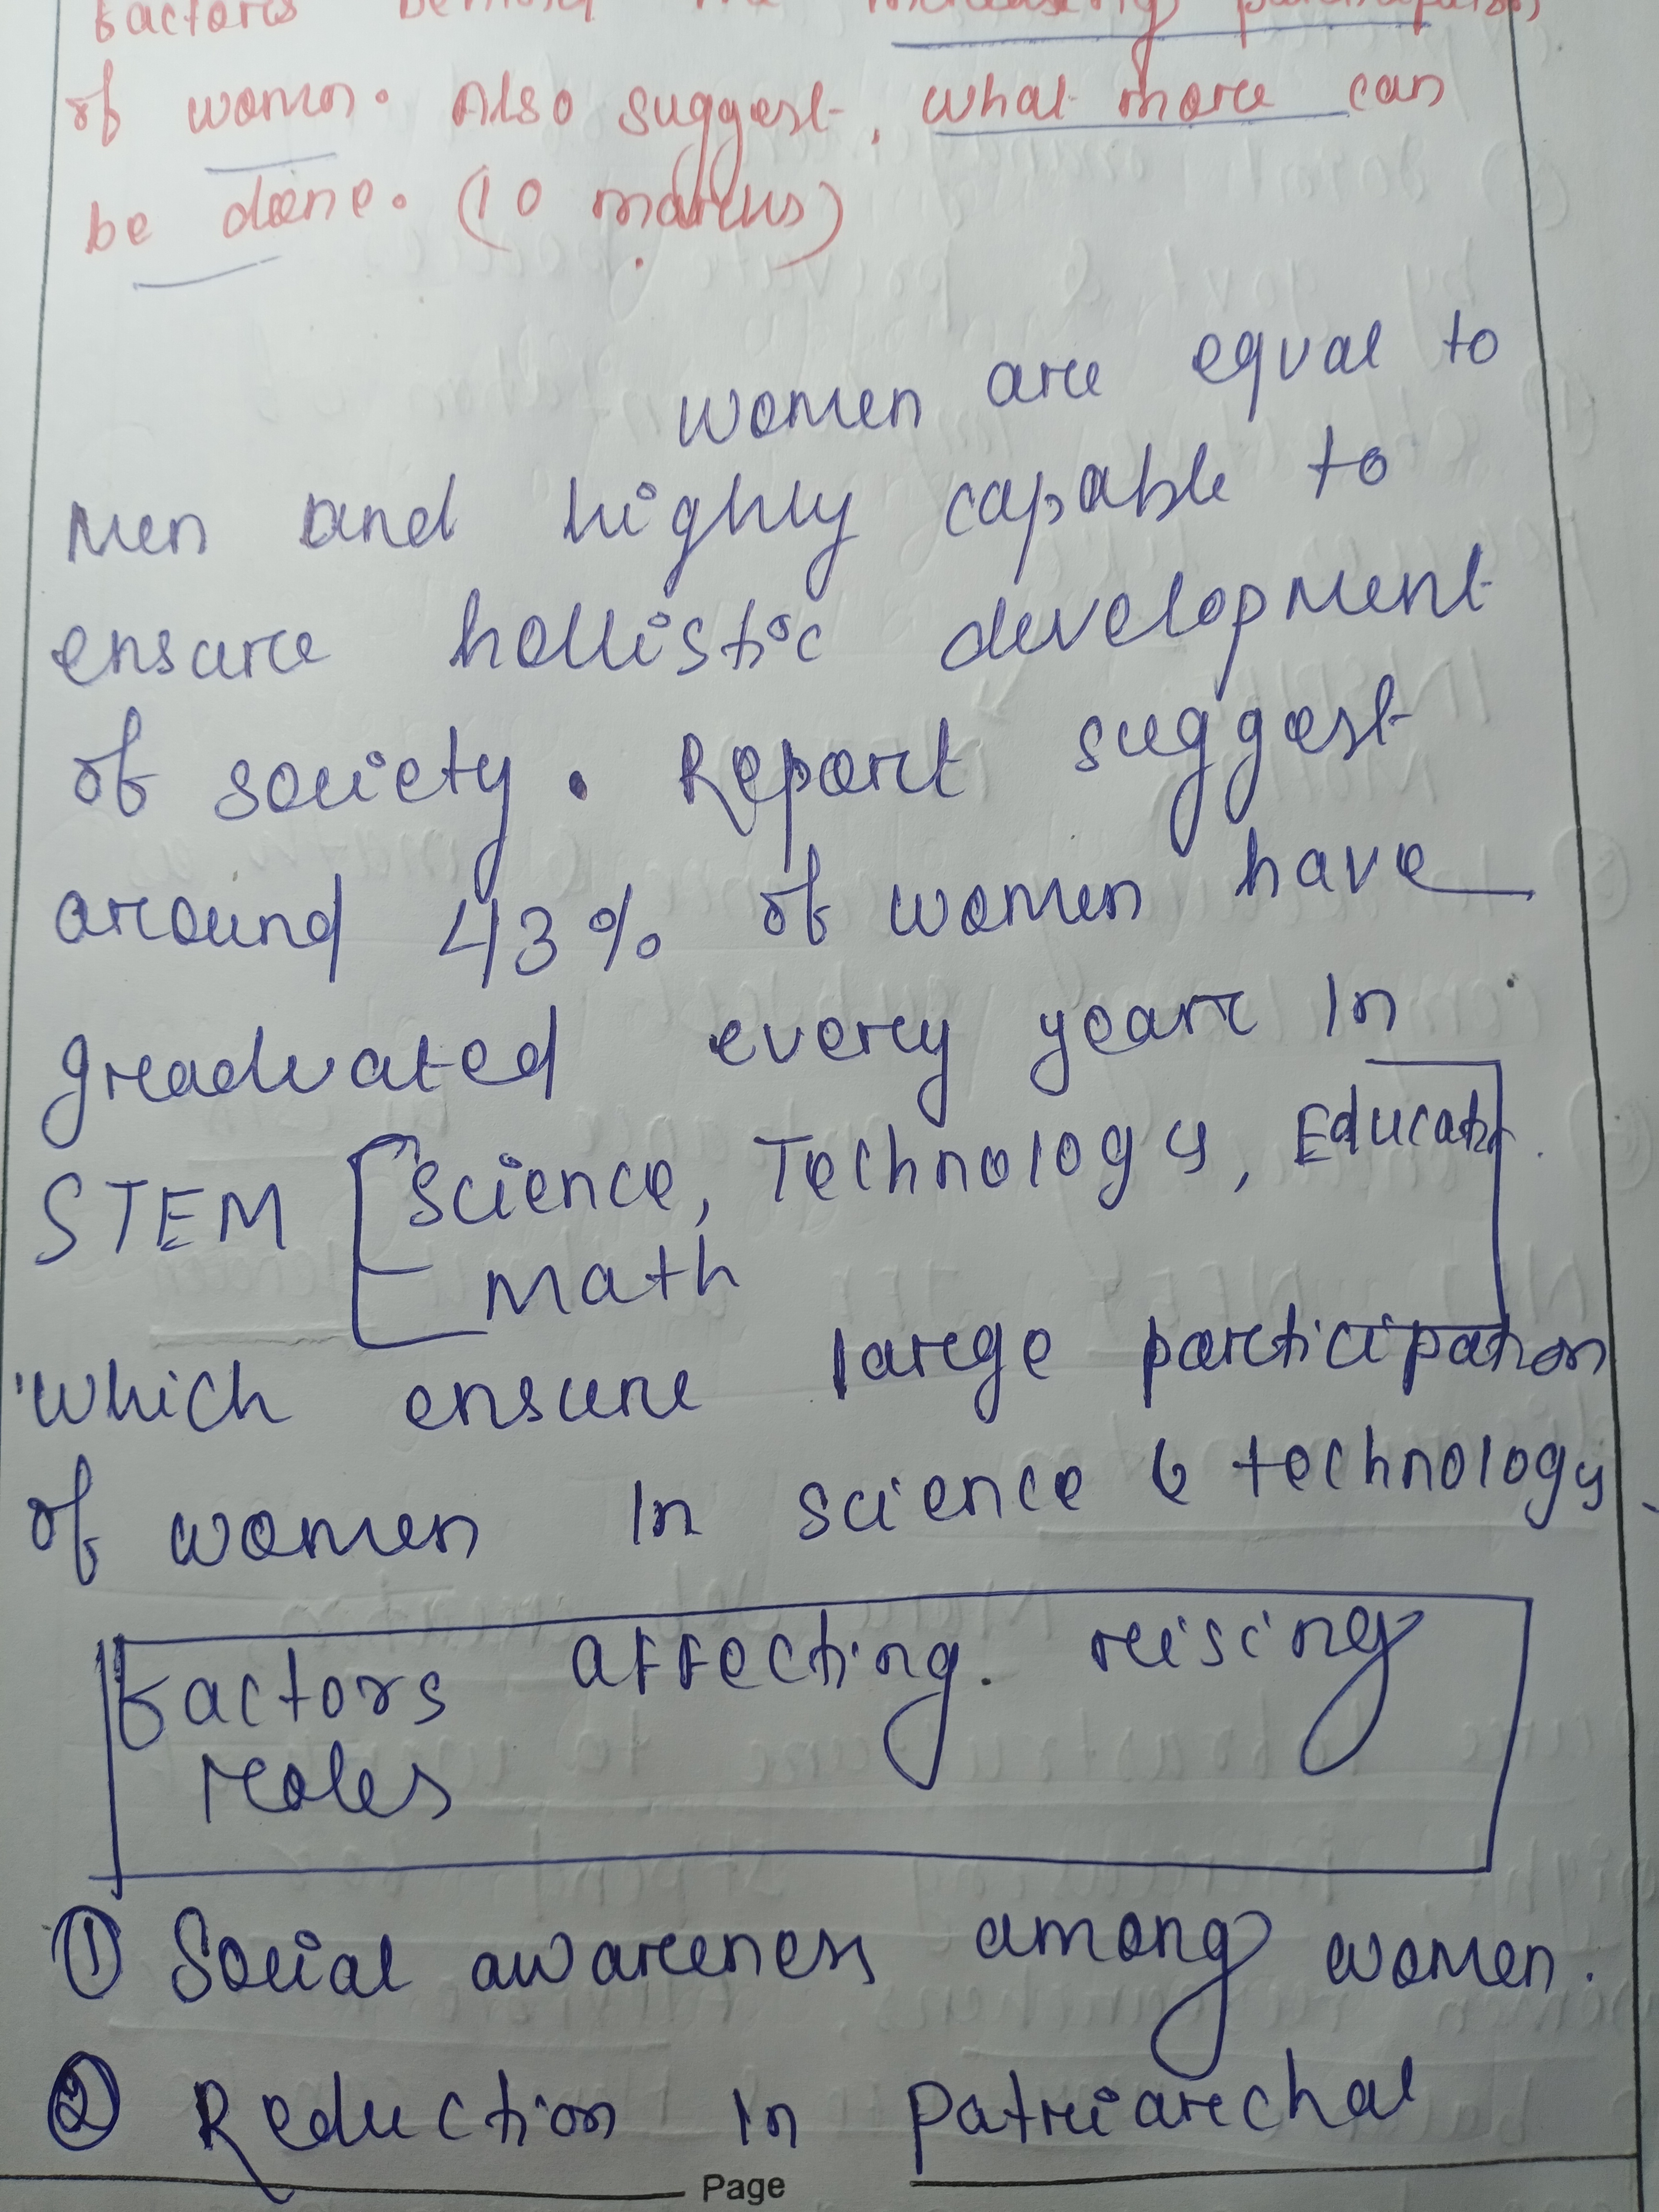 factors behind the increasing participation
of women. Also suggest, what more can
be done. (10 marks)
women are equal to
Men and highly capable to
ensure hollistic development
of society. Report suggest
around 43% of women have
graduated every year In
STEM [Science, Technology, Educatn.
Math
which ensure large participation
of women In science & technology.
Factors affecting. rising
roles
① Social awareness among women.
② Reduction in patriarchal
Page